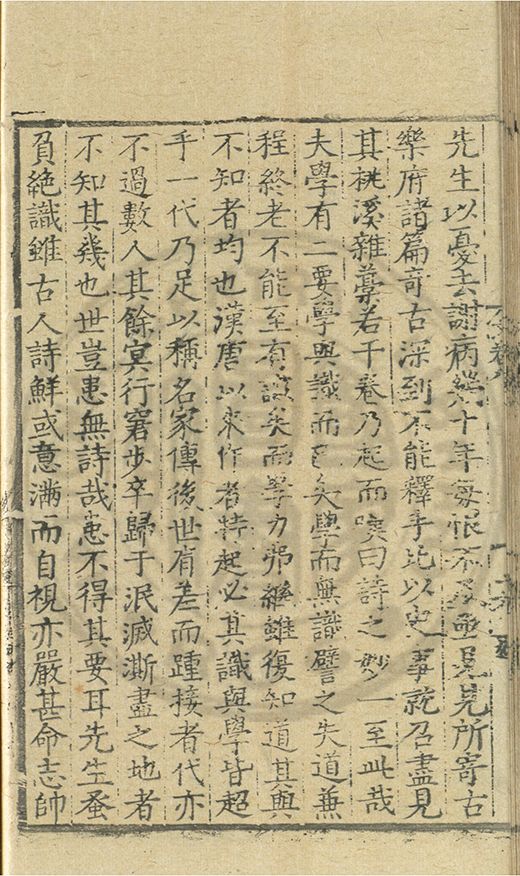 先生以憂去謝病幾十年每恨不及亟見見所寄古
樂府諸篇奇古深到不能釋手比以史事就召盡見
其桃溪雜藁若干卷乃起而嘆曰詩之妙一至此哉
夫學有二要學與識而已矣學而無識譬之失道兼
程終老不能至有識矣而學力弗繼雖復知道其與
不知者均也漢唐以來作者特起必其識與學皆超
乎一代乃足以稱名家傳後世有差而踵接者代亦
不過數人其餘冥行窘步卒歸于泯滅澌盡之地者
不知其幾也世豈患無詩哉患不得其要耳先生蚤
負絶識雖古人詩鮮或意滿而自視亦嚴甚命志師